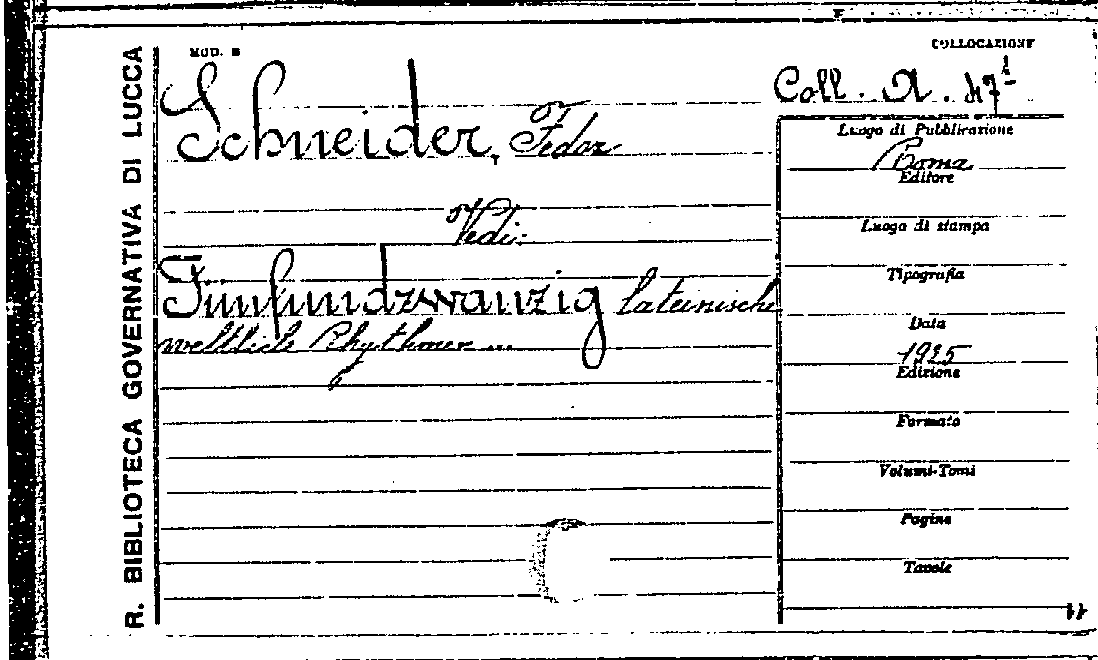 R. BIBLIOTECA GOVERNATIVA DI LUCCA
MOD. B
COLLOCAZIONE
Coll. A. 47¹
Schneider, Fedor
Vedi:
Fünfundzwanzig lateinische
weltliche Rhythmen ...
Luogo di Pubblicazione
Roma
Editore
Luogo di stampa
Tipografia
Data
1925
Edizione
Formato
Volumi-Tomi
Pagine
Tavole